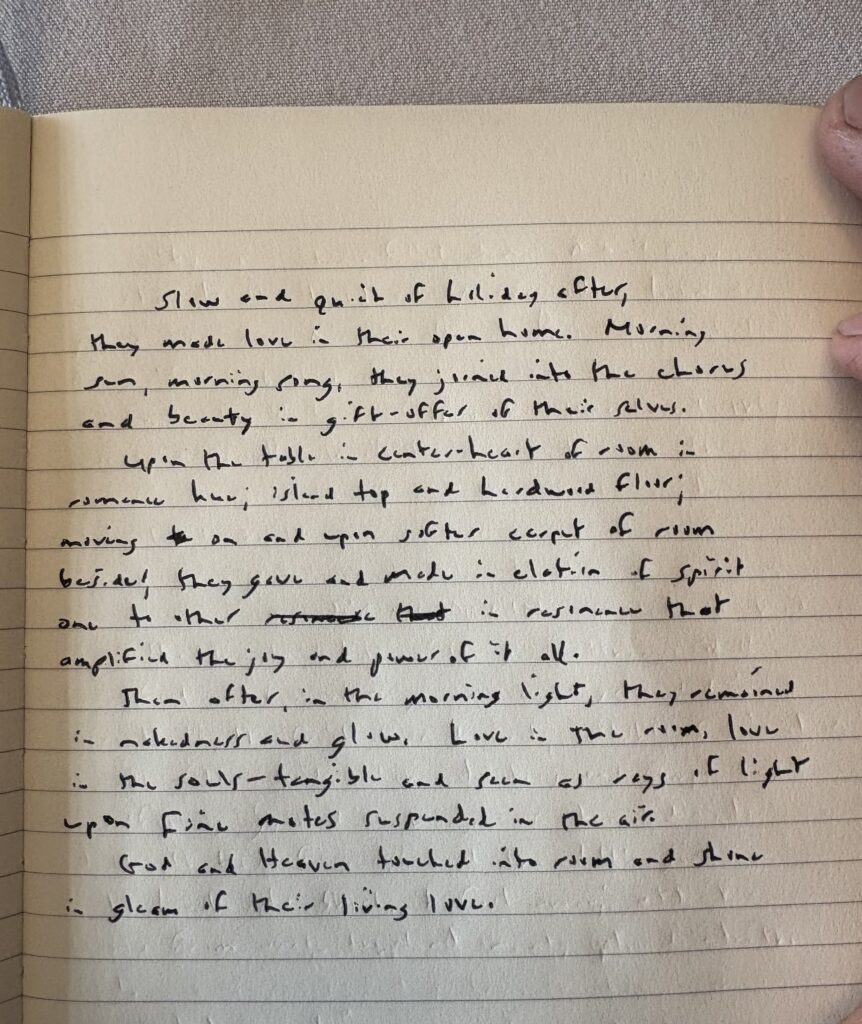 Slow and quiet of holiday after,
they made love in their open home. Morning
sun, morning song, they joined into the chorus
and beauty in gift-offer of their selves.
Upon the table in center-heart of room in
romance hue; island top and hardwood floor;
moving to on and upon softer carpet of room
beside; they gave and made in elation of spirit
one to other resonance that in resonance that
amplified the joy and power of it all.
Then after, in the morning light, they remained
in nakedness and glow. Love in the room, love
in the souls—tangible and seen as rays of light
upon fine motes suspended in the air.
God and Heaven touched into room and shone
in gleam of their living love.